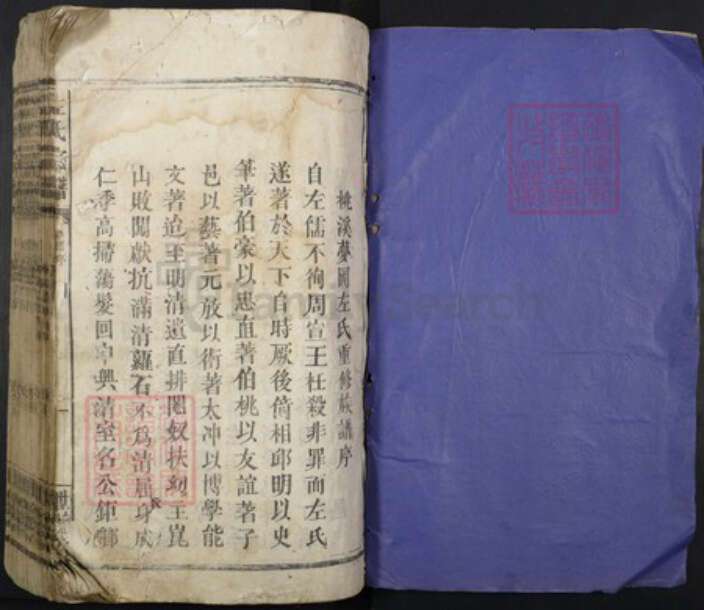 桃溪夢岡左氏重修族譜序
自左儒不徇周宣王枉殺非罪而左氏
遂著於天下自時厥後倚相邱明以史
筆著伯豪以忠直著伯桃以友誼著子
邑以藝著元放以術著太冲以博學能
文著迨至明清遺直排閹奴扶幼主崑
山敗闖獻抗滿清蘿石不為清屈身成
仁季高掃蕩髮回中興清室名公鉅卿
左氏
FamilySearch